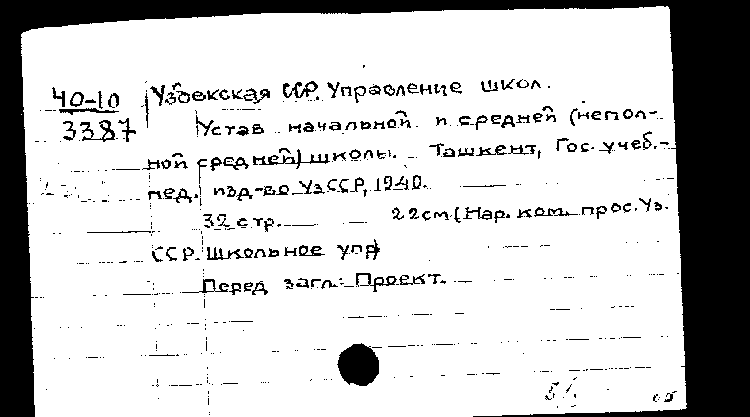 40-10 Узбекская ССР. Управление школ.
3387 Устав начальной и средней (непол-
ной средней) школы. Ташкент, Гос. учеб.-
пед. изд-во УзССР, 1940.
32 стр. 22 см (Нар. ком. прос. Уз.
ССР. Школьное упр)
Перед загл.: Проект.